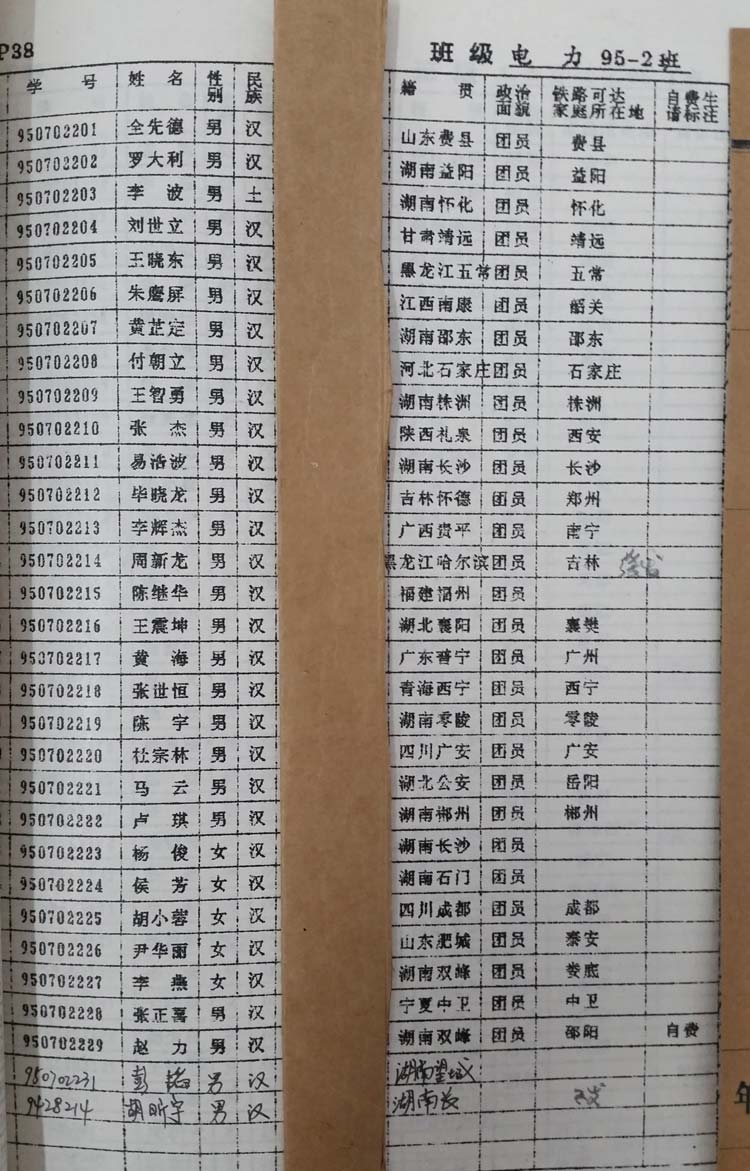 P38 班级电 力 95-2班
学 号 姓 名 性别 民族 籍 贯 政治面貌 铁路可达家庭所在地 自费生请标注
950702201 全先德 男 汉 山东费县 团员 费县
950702202 罗大利 男 汉 湖南益阳 团员 益阳
950702203 李 波 男 土 湖南怀化 团员 怀化
950702204 刘世立 男 汉 甘肃靖远 团员 靖远
950702205 王晓东 男 汉 黑龙江五常 团员 五常
950702206 朱鹰屏 男 汉 江西南康 团员 韶关
950702207 黄芷定 男 汉 湖南邵东 团员 邵东
950702208 付朝立 男 汉 河北石家庄 团员 石家庄
950702209 王智勇 男 汉 湖南株洲 团员 株洲
950702210 张 杰 男 汉 陕西礼泉 团员 西安
950702211 易浩波 男 汉 湖南长沙 团员 长沙
950702212 毕晓龙 男 汉 吉林怀德 团员 郑州
950702213 李辉杰 男 汉 广西贵平 团员 南宁
950702214 周新龙 男 汉 黑龙江哈尔滨 团员 吉林
950702215 陈继华 男 汉 福建福州 团员
950702216 王震坤 男 汉 湖北襄阳 团员 襄樊
950702217 黄 海 男 汉 广东普宁 团员 广州
950702218 张世恒 男 汉 青海西宁 团员 西宁
950702219 陈 宇 男 汉 湖南零陵 团员 零陵
950702220 杜宗林 男 汉 四川广安 团员 广安
950702221 马 云 男 汉 湖北公安 团员 岳阳
950702222 卢 琪 男 汉 湖南郴州 团员 郴州
950702223 杨 俊 女 汉 湖南长沙 团员
950702224 侯 芳 女 汉 湖南石门 团员
950702225 胡小蓉 女 汉 四川成都 团员 成都
950702226 尹华丽 女 汉 山东肥城 团员 泰安
950702227 李 燕 女 汉 湖南双峰 团员 娄底
950702228 张正喜 男 汉 宁夏中卫 团员 中卫
950702229 赵 力 男 汉 湖南双峰 团员 邵阳 自费
950702231 彭 铭 男 汉 湖南望城
9428214 胡昕宇 男 汉 湖南长